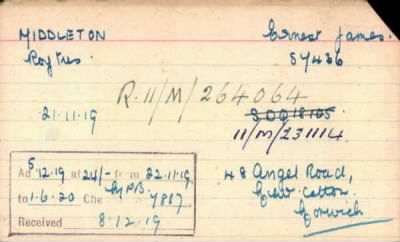 MIDDLETON Ernest James.
Roy Fus. 57436
R.11/M/264064
21.11.19
11/M/231114.
5.12.19 at 24/- from 22.11.19
to 1.6.20 Che 7887
Received 8.12.19
48 Angel Road,
New Catton.
Norwich